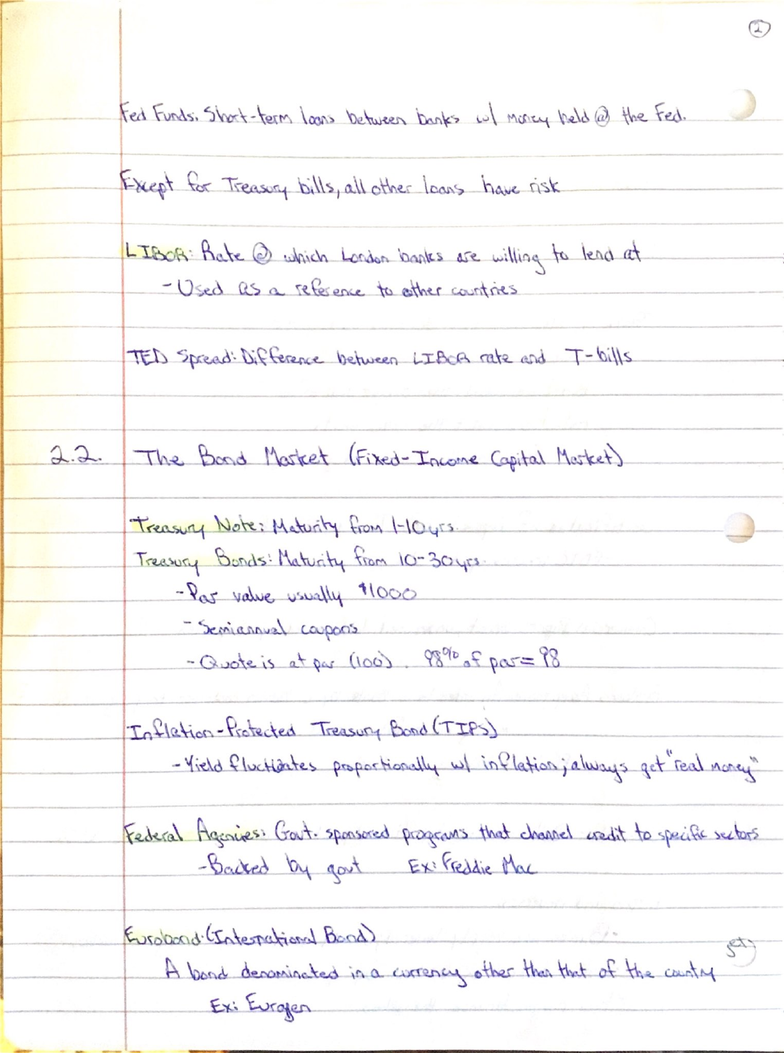 2
Fed Funds: Short-term loans between banks w/ money held @ the Fed.
Except for Treasury bills, all other loans have risk
LIBOR: Rate @ which London banks are willing to lend at
- Used as a reference to other countries
TED Spread: Difference between LIBOR rate and T-bills
2.2. The Bond Market (Fixed-Income Capital Market)
Treasury Note: Maturity from 1-10yrs.
Treasury Bonds: Maturity from 10-30yrs.
- Par value usually $1000
- Semiannual coupons
- Quote is at par (100). 98% of par = 98
Inflation-Protected Treasury Bond (TIPs)
- Yield fluctuates proportionally w/ inflation; always get "real money"
Federal Agencies: Govt. sponsored programs that channel credit to specific sectors
- Backed by govt Ex: Freddie Mac
Eurobond: (International Bond)
A bond denominated in a currency other than that of the county
Ex: Euroyen